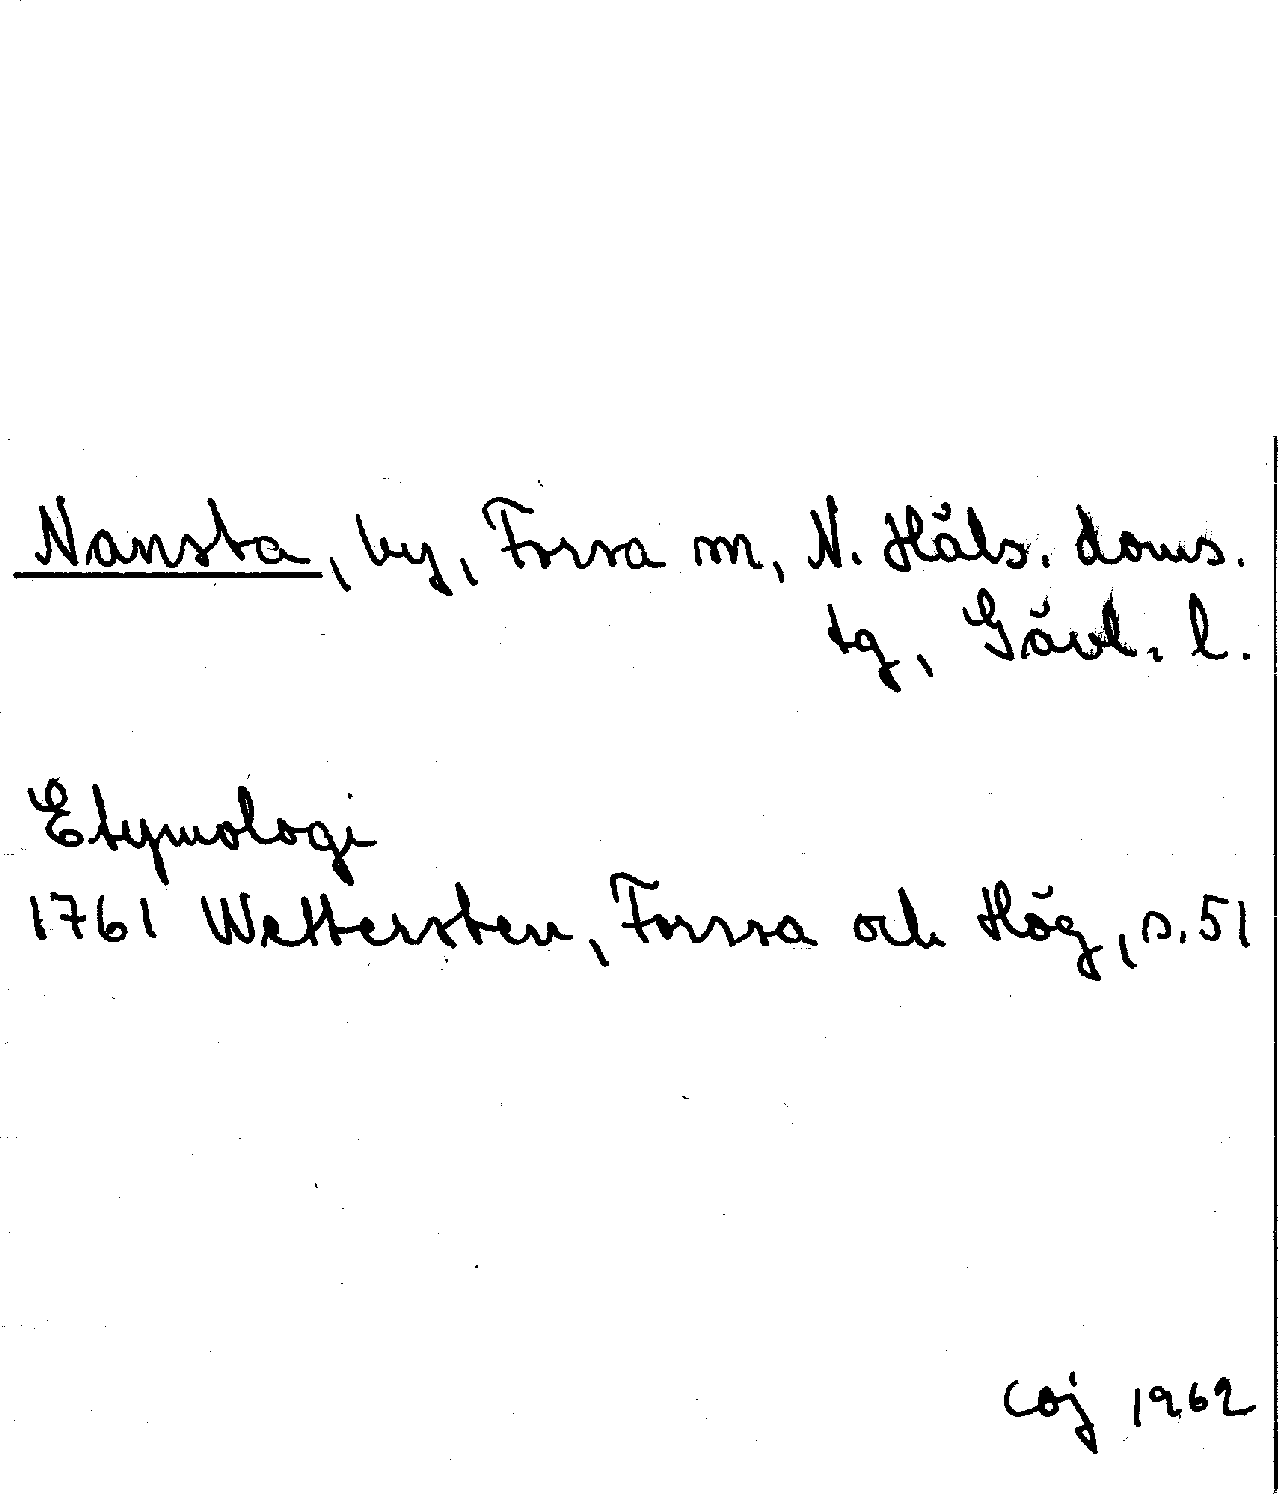 Nansta, by, Forsa sn, N. Häls. doms.
tg, Gävl. l.
Etymologi
1761 Wettersten, Forssa och Hög, s. 51
Coj 1962